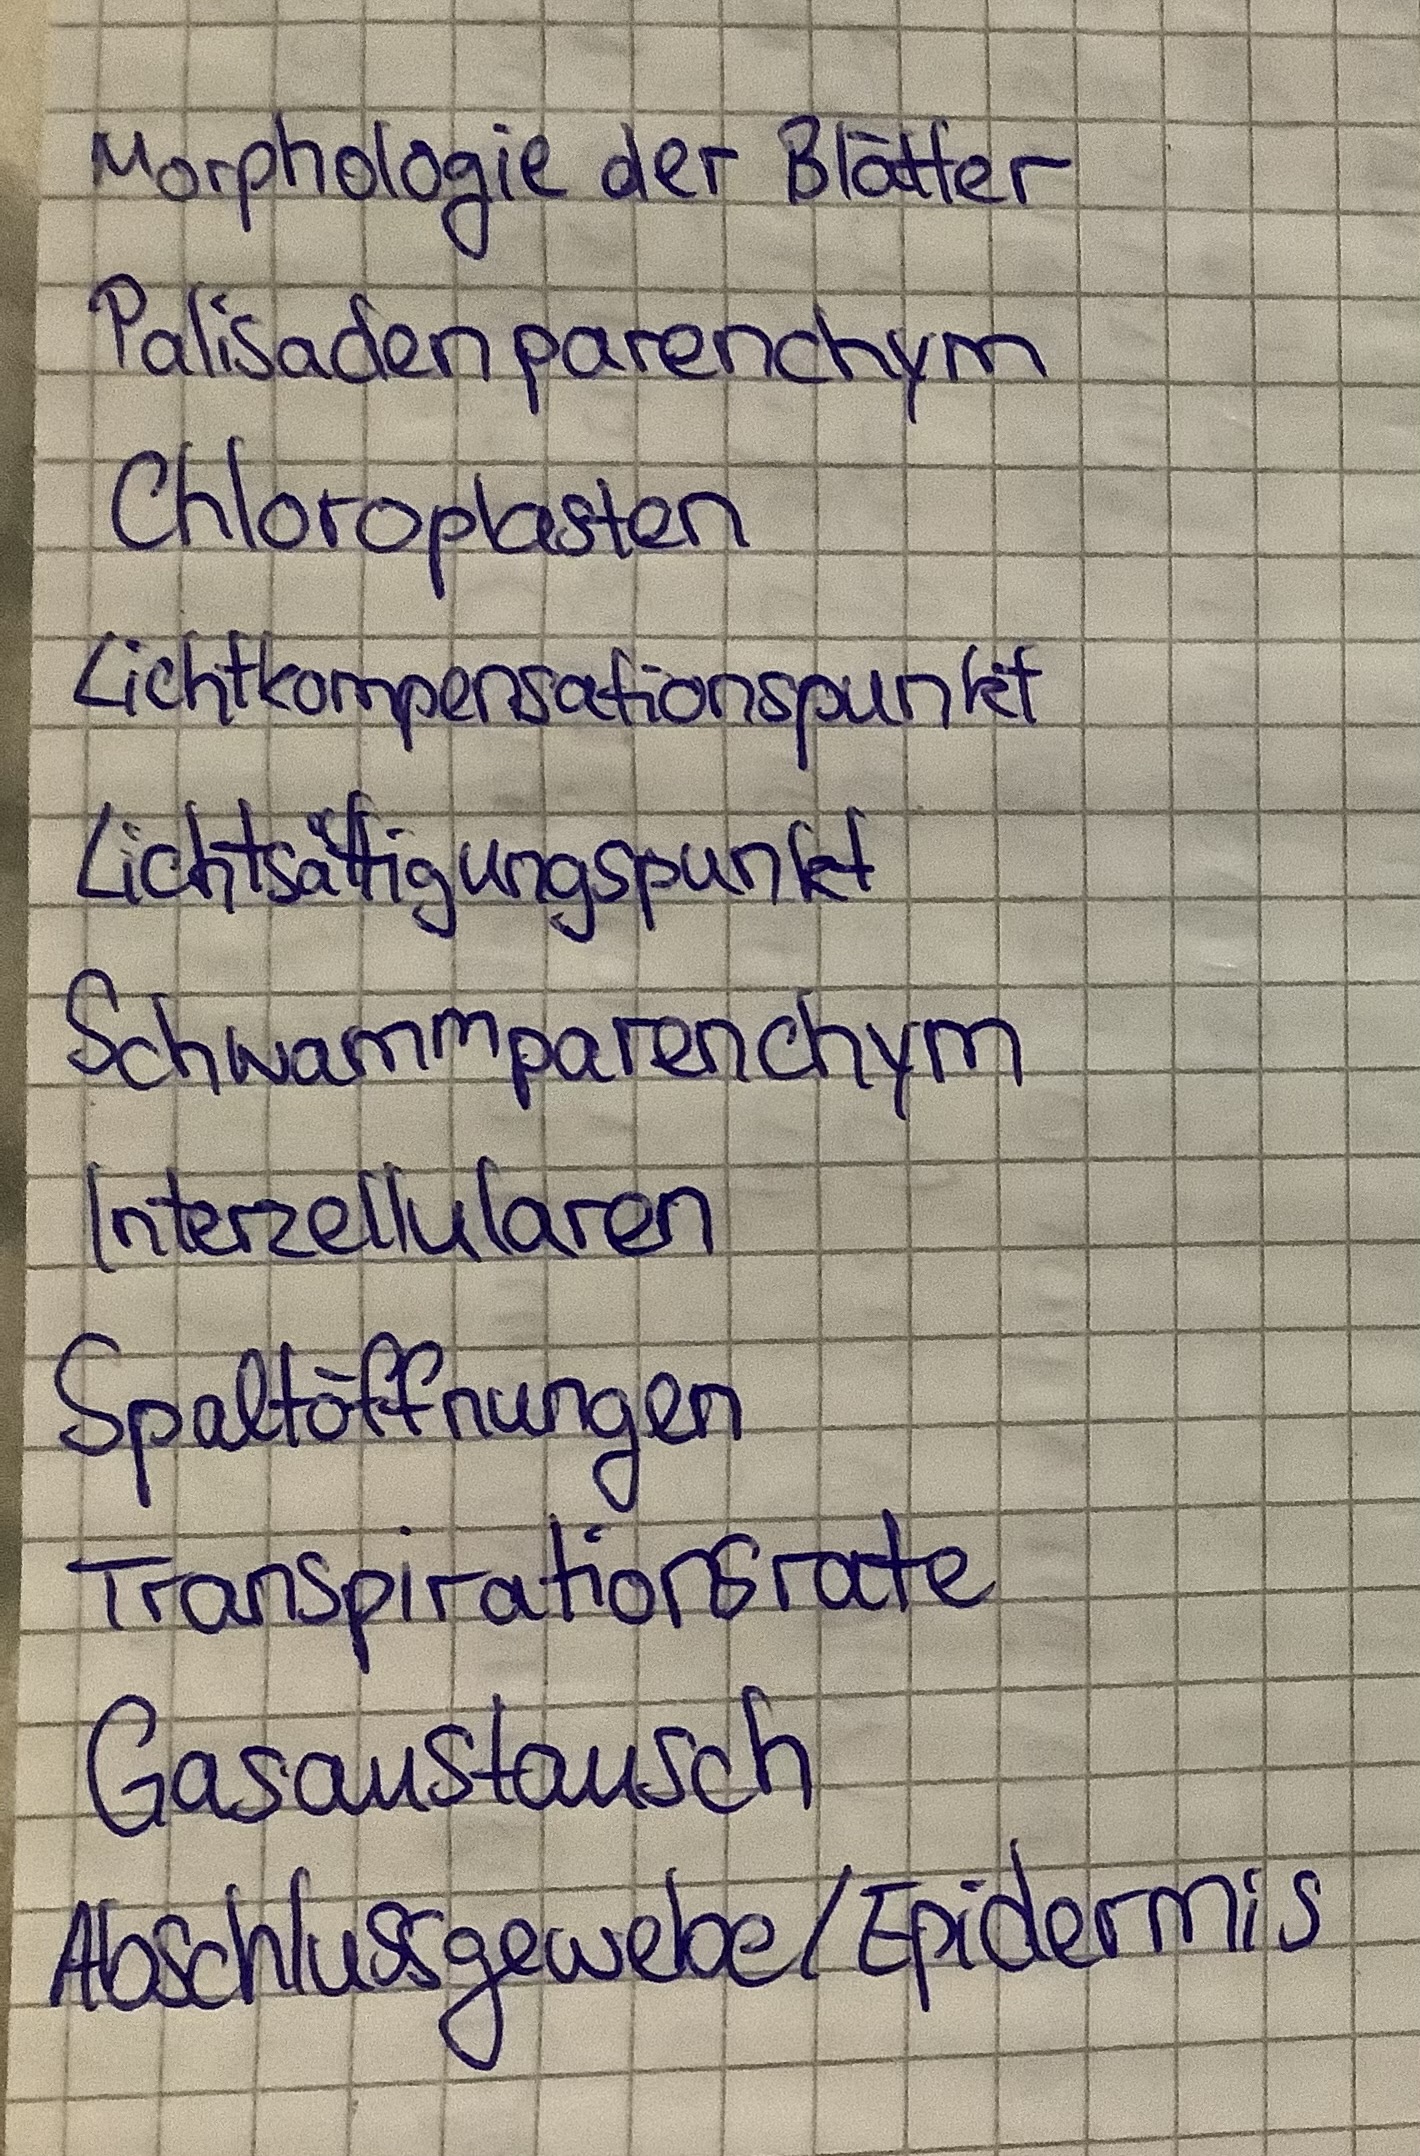 Morphologie der Blätter
Palisadenparenchym
Chloroplasten
Lichtkompensationspunkt
Lichtsättigungspunkt
Schwammparenchym
Interzellularen
Spaltöffnungen
Transpirationsrate
Gasaustausch
Abschlussgewebe/Epidermis